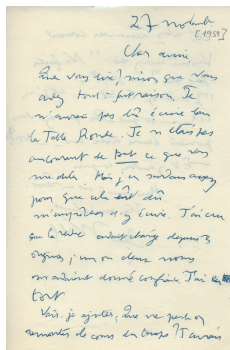 27 novembre
[1958]
Cher ami,
Que vous dire, sinon que vous
avez tout à fait raison. Je
n'aurais pas dû écrire dans
la Table Ronde. Je n'étais pas
au courant de tout ce que vous
me dites. Mais j'en savais assez
pour que cela eût dû
m'empêcher d'y écrire. J'ai cru
que la revue avait changé depuis
origines
donné confiance. J'ai eu
tort
Vais-je ajouter, que ne peut-on
remonter le cours du temps? J'aurais